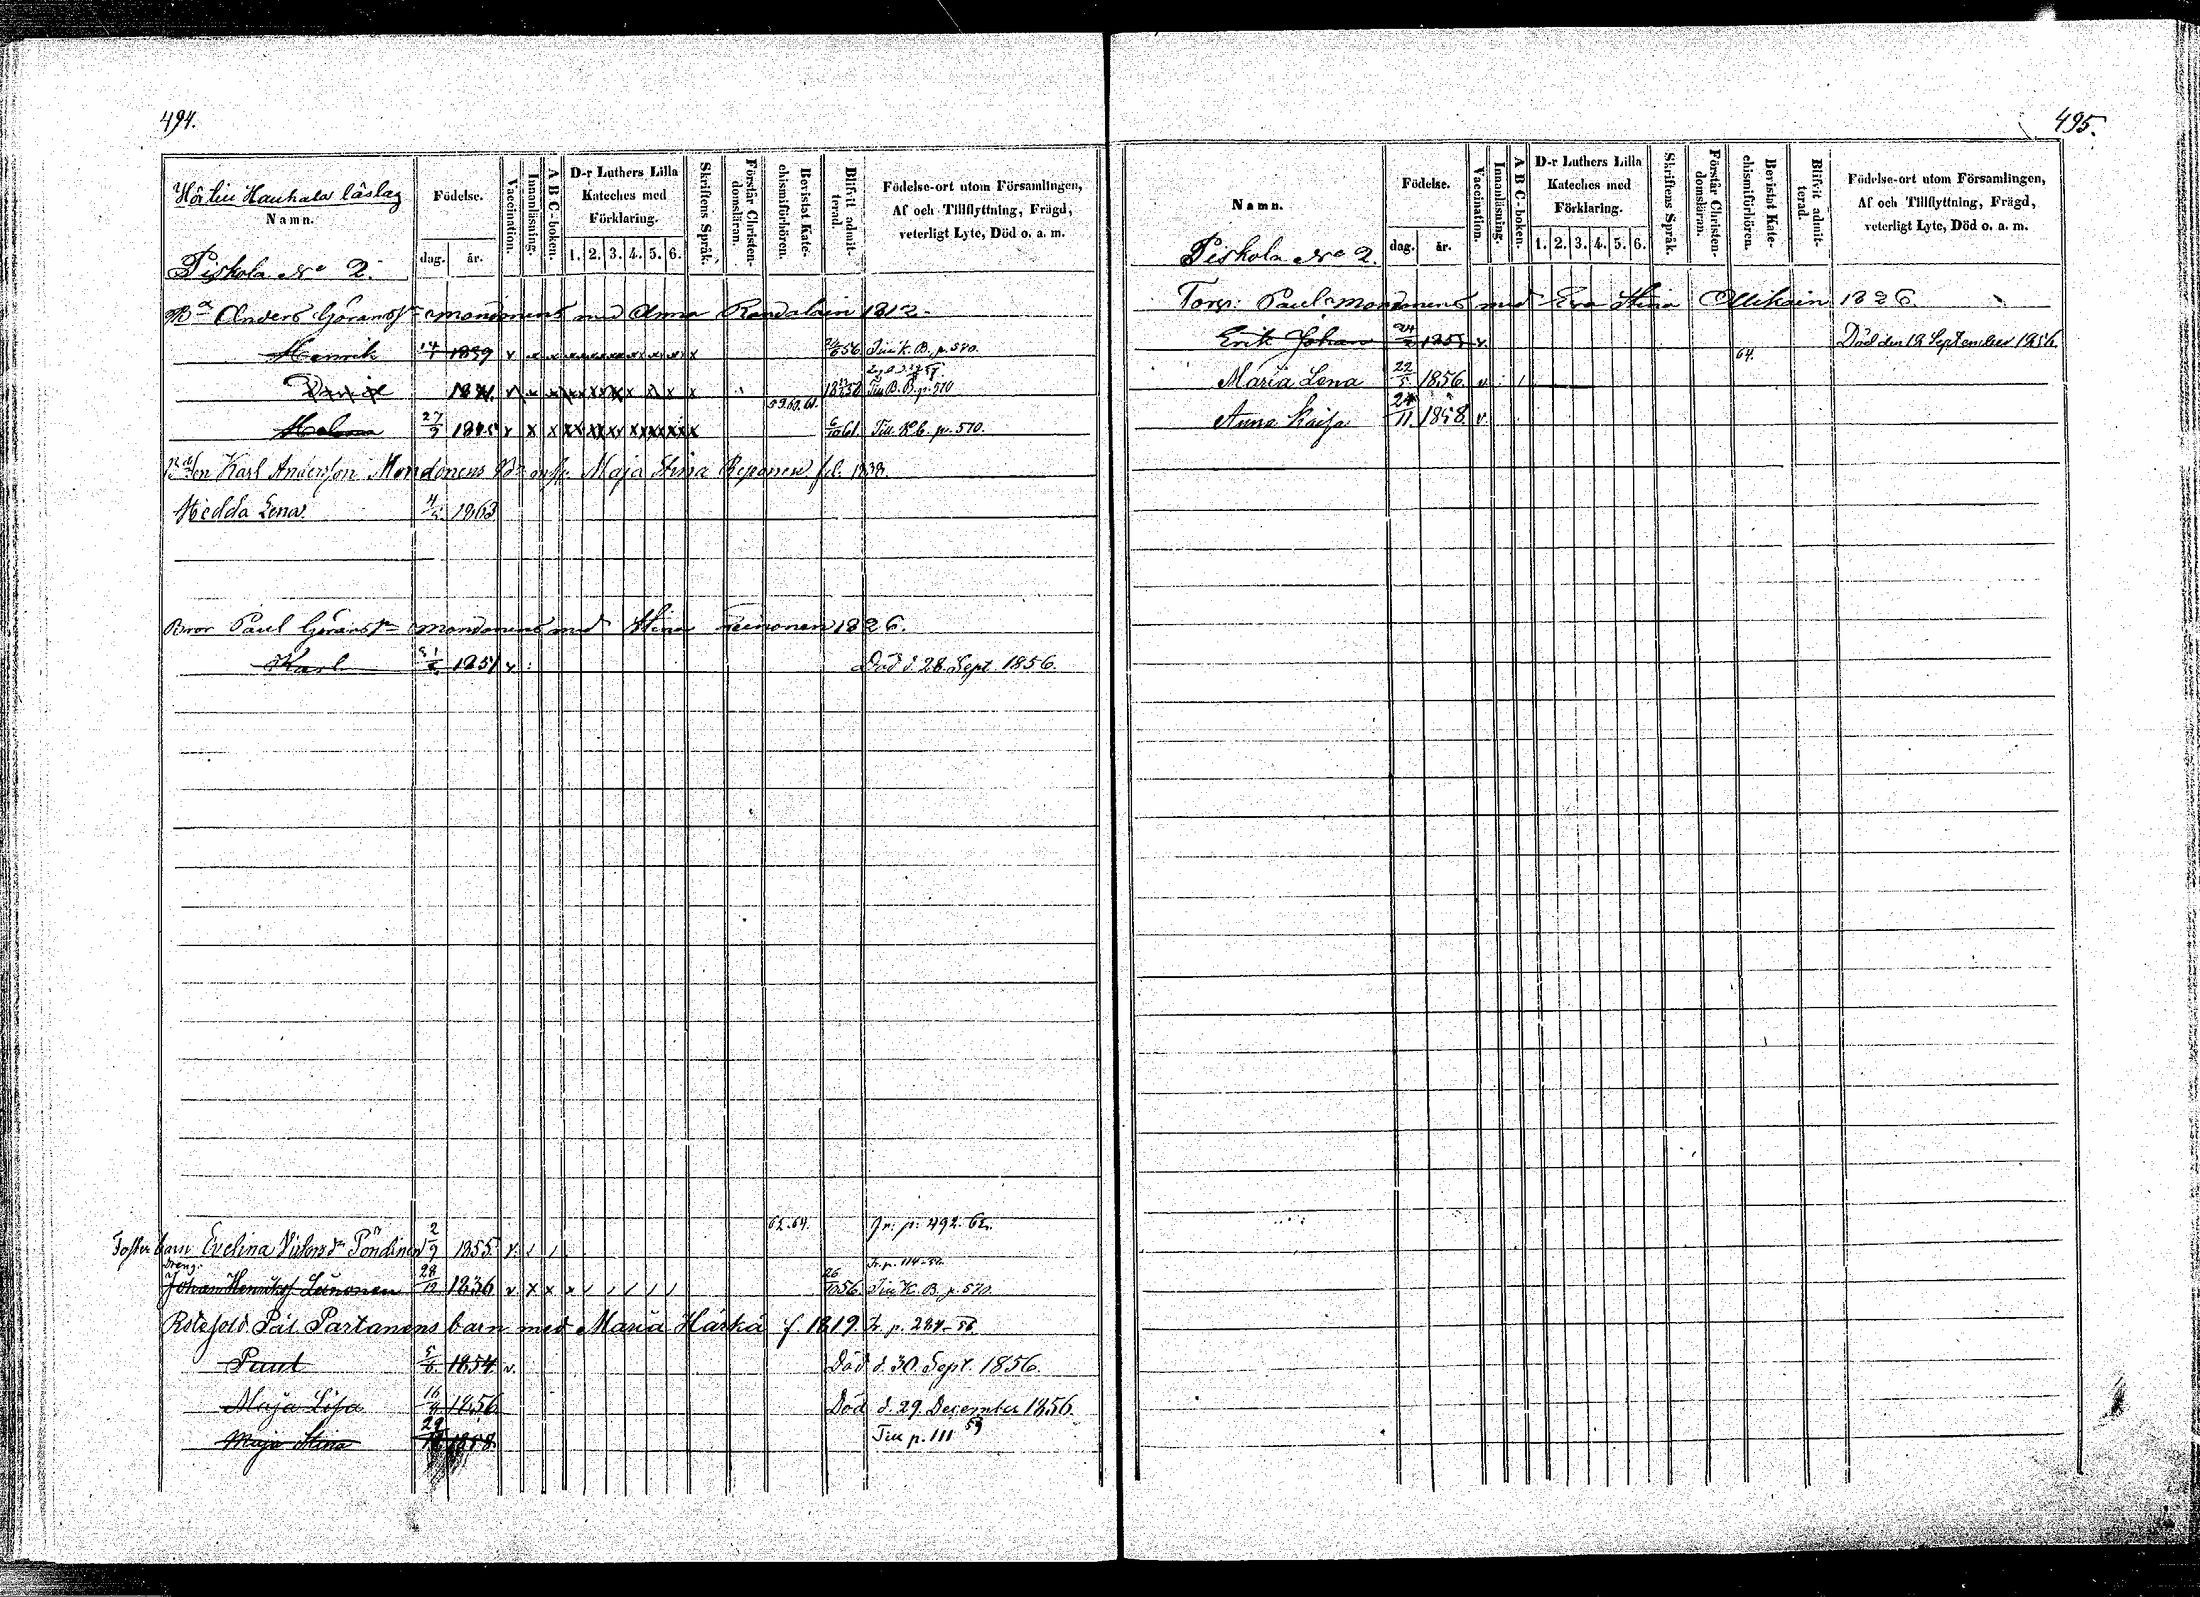 494.
Hör till Hauhala läslag
Namn.
Födelse.
dag. år.
Vaccination.
Innanläsning.
A B C-boken.
D-r Luthers Lilla
Kateches med
Förklaring.
1. 2. 3. 4. 5. 6.
Skriftens Språk.
Förstår Christen-
domsläran.
Bevistat Kate-
chismiförhören.
Blifvit admit-
terad.
Födelse-ort utom Församlingen,
Af och Tillflyttning, Frägd,
veterligt Lyte, Död o. a. m.
Piskola No 2.
Anders Göransson Mondonens med Anna Randalain 1812.
Henrik 1839 v x x x x x x x x x 56 Till K. B. p. 570.
David 1841. v x x x x x x x x x 58 Till B. B. p. 570
59. 60. 61.
Helena 27/9 1845 v x x x x x x x x x 61. Till K. B. p. 570.
Karl Andersson Mondonens Maja Stina Reponen 1838.
Hedda Lena 1863
Bror Paul Göransson Mondonens med Stina Teinonen 1826.
Karl 1851 v : Död d. 28 Sept. 1856.
62. 64. Fr. p. 492. 62.
Foster barn Evelina Pöndinen 2/9 1855. v. / /
Dreng.
Fr. p. 114-56.
Johan Henriksson Leinonen 28/12 1836 v x x x / / / / / 26/10 56. Till K. B. p. 570.
Rotefold Pål Partanens barn med Maria Härkä f. 1819. Fr. p. 284-56.
Paul 5/6 1854 v. Död d. 30. Sept. 1856.
Maja Lisa 1856 Död d. 29. December 1856.
Maja Stina 1858. Till p. 111 59
495.
Namn.
Födelse.
dag. år.
Vaccination.
Innanläsning.
A B C-boken.
D-r Luthers Lilla
Kateches med
Förklaring.
1. 2. 3. 4. 5. 6.
Skriftens Språk.
Förstår Christen-
domsläran.
Bevistat Kate-
chismiförhören.
Blifvit admit-
terad.
Födelse-ort utom Församlingen,
Af och Tillflyttning, Frägd,
veterligt Lyte, Död o. a. m.
Piskola No 2.
Torp: Paul Mondonens med Eva Stina Ollikain 1826.
Erik Johan 1855 v. Död den 19 September 1856.
64.
Maria Lena 22/5 1856. v. : /
Anna Kaisa 24/11 1858. v.